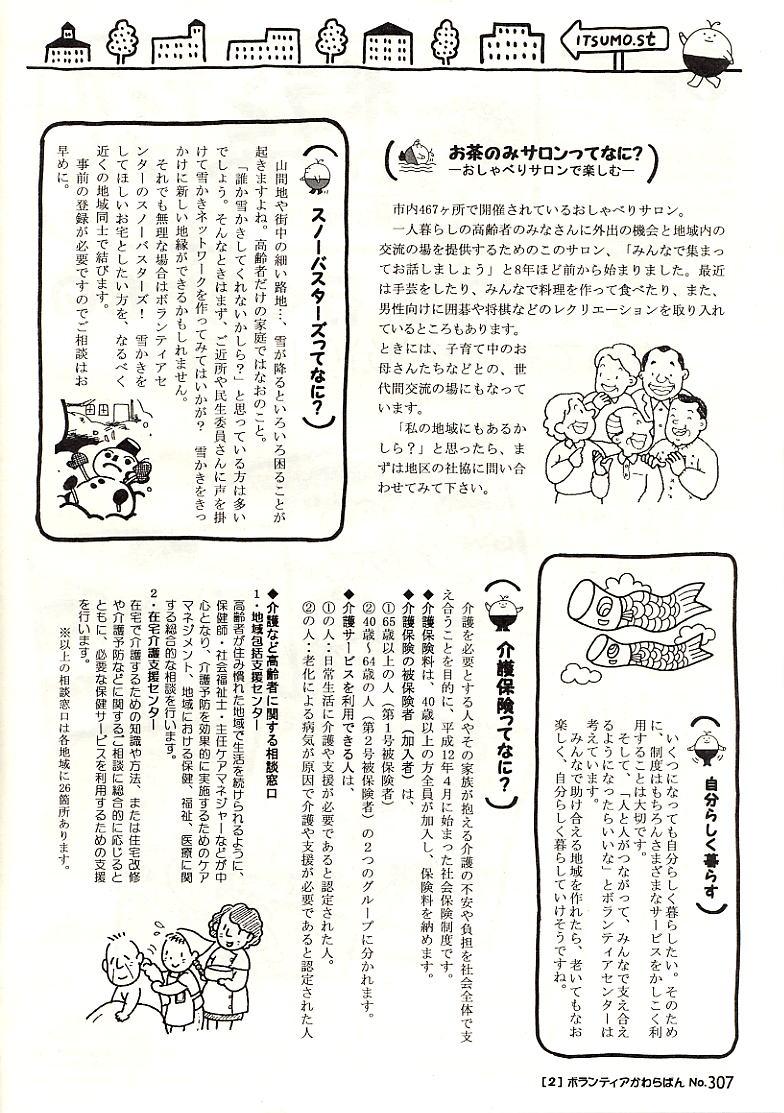 ITSUMO.st
お茶のみサロンってなに?
―おしゃべりサロンで楽しむ―
市内467ヶ所で開催されているおしゃべりサロン。
一人暮らしの高齢者のみなさんに外出の機会と地域内の
交流の場を提供するためのこのサロン、「みんなで集まっ
てお話しましょう」と8年ほど前から始まりました。最近
は手芸をしたり、みんなで料理を作って食べたり、また、
男性向けに囲碁や将棋などのレクリエーションを取り入れ
ているところもあります。
ときには、子育て中のお
母さんたちなどとの、世
代間交流の場にもなって
います。
「私の地域にもあるか
しら?」と思ったら、ま
ずは地区の社協に問い合
わせてみて下さい。
スノーバスターズってなに?
山間地や街中の細い路地…、雪が降るといろいろ困ることが
起きますよね。高齢者だけの家庭ではなおのこと。
「誰か雪かきしてくれないかしら?」と思っている方は多い
でしょう。そんなときはまず、ご近所や民生委員さんに声を掛
けて雪かきネットワークを作ってみてはいかが? 雪かきをきっ
かけに新しい地縁ができるかもしれません。
それでも無理な場合はボランティアセ
ンターのスノーバスターズ! 雪かきを
してほしいお宅としたい方を、なるべく
近くの地域同士で結びます。
事前の登録が必要ですのでご相談はお
早めに。
自分らしく暮らす
いくつになっても自分らしく暮らしたい。そのため
に、制度はもちろんさまざまなサービスをかしこく利
用することは大切です。
そして、「人と人がつながって、みんなで支え合え
るようになったらいいな」とボランティアセンターは
考えています。
みんなで助け合える地域を作れたら、老いてもなお
楽しく、自分らしく暮らしていけそうですね。
介護保険ってなに?
介護を必要とする人やその家族が抱える介護の不安や負担を社会全体で支
え合うことを目的に、平成12年4月に始まった社会保険制度です。
◆介護保険料は、40歳以上の方全員が加入し、保険料を納めます。
◆介護保険の被保険者(加入者)は、
①65歳以上の人(第1号被保険者)
②40歳~64歳の人(第2号被保険者)の2つのグループに分かれます。
◆介護サービスを利用できる人は、
①の人:日常生活に介護や支援が必要であると認定された人。
②の人:老化による病気が原因で介護や支援が必要であると認定された人
◆介護など高齢者に関する相談窓口
1・地域包括支援センター
高齢者が住み慣れた地域で生活を続けられるように、
保健師・社会福祉士・主任ケアマネジャーなどが中
心となり、介護予防を効果的に実施するためのケア
マネジメント、地域における保健、福祉、医療に関
する総合的な相談を行います。
2・在宅介護支援センター
在宅で介護するための知識や方法、または住宅改修
や介護予防などに関するご相談に総合的に応じると
ともに、必要な保健サービスを利用するための支援
を行います。
※以上の相談窓口は各地域に26箇所あります。
[2] ボランティアかわらばん No.307